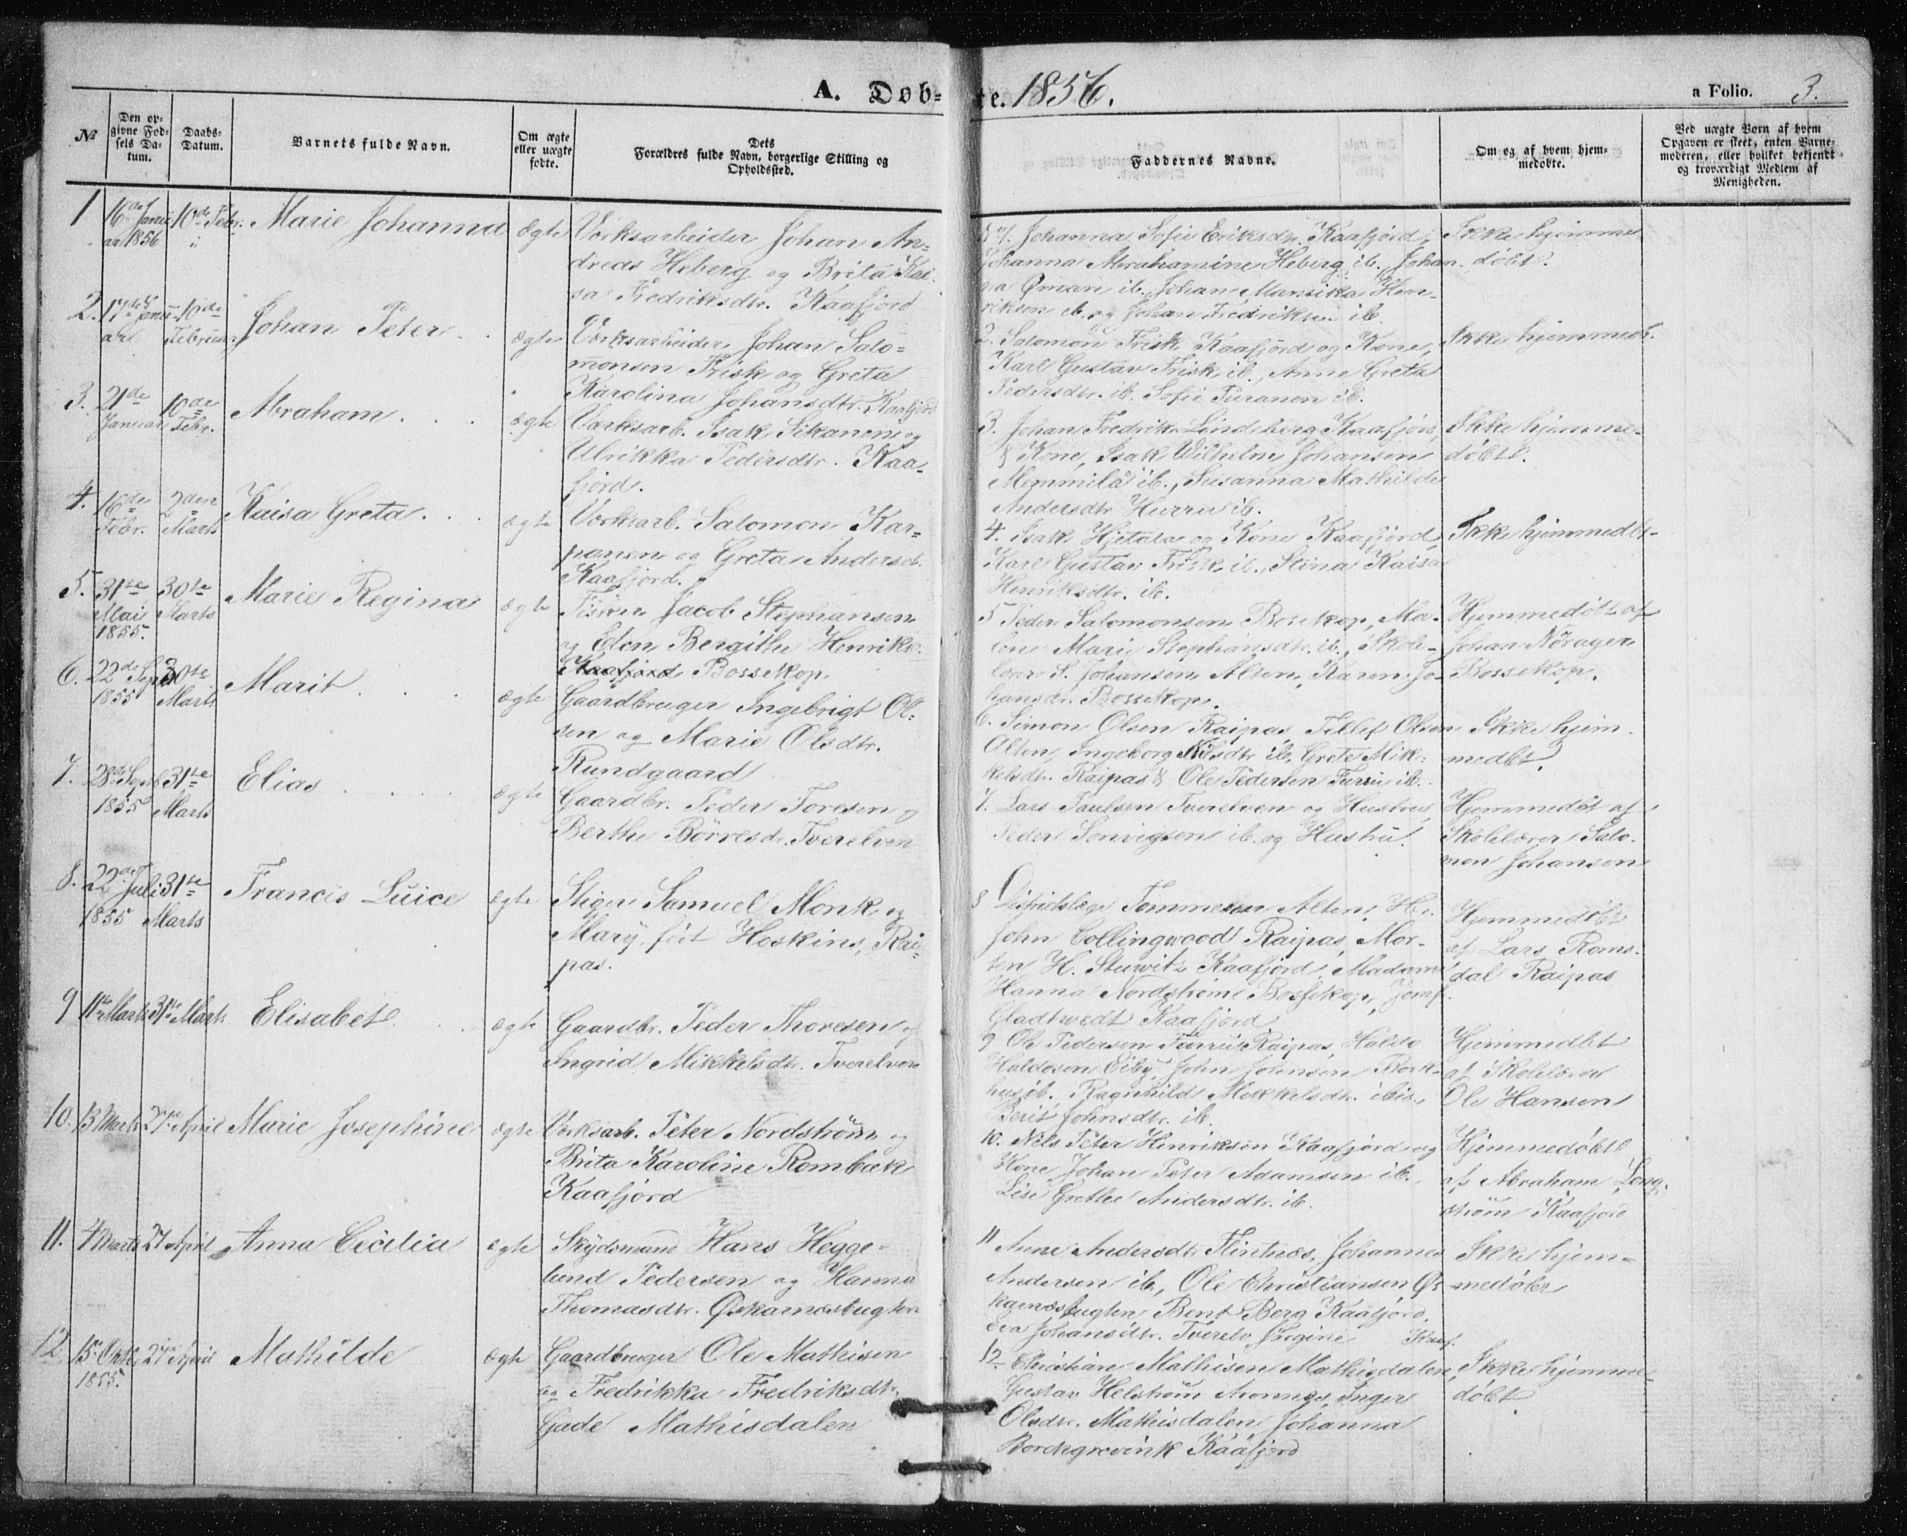 A. Døb-
te. 1856.
a Folio. 3.
№
Den op-
givne Fød-
sels Da-
tum.
Daabs-
Datum.
Barnets fulde Navn.
Om ægte
eller uægte
fødte.
Dets
Forældres fulde Navn, borgerlige Stilling og
Opholdssted.
Faddernes Navne.
Om og af hvem hjem-
medøbte.
Ved uægte Børn af hvem
Opgaven er skeet, enten Barne-
moderen, eller hvilket bekjendt
og troværdigt Medlem af
Menigheden.
1
16de Janu-
ar 1856
10de Febr.
Marie Johanna
ægte
Verksarbeider Johan An-
dreas Heberg og Brita Kai-
sa Fredriksdtr. Kaafjord
1. Johanna Sofie Eriksdr. Kaafjord,
Johanna Abrahamine Heberg ib., Johan-
na Öman ib., Johan Mansika Hen-
riksen ib. og Johan Fredriksen ib.
Ikke hjemme-
døbt.
2.
17de Janu-
ar
10de
Februar
Johan Peter
ægte
Verksarbeider Johan Salo-
monsen Frisk og Greta
Karolina Johansdtr. Kaafjord
2. Salomon Frisk Kaafjord og Kone,
Karl Gustav Frisk ib., Anne Greta
Pedersdtr. ib. Sofie Turanen ib.
Ikke hjemmedt.
3.
21de
Januar
10de
Febr.
Abraham
ægte
Verksarb. Isak Sikanen og
Ulrikka Pedersdtr. Kaa-
fjord.
3. Johan Fredrik Lindberg Kaafjord,
& Kone, Isak Wilhelm Johansen
Memmilä ib., Susanna Mathilde
Andersdtr Hurru ib.
Ikke hjemme-
døbt.
4.
16de
Febr.
2den
Marts
Kaisa Greta
ægte
Verksarb. Salomon Kar-
panen og Greta Andersdt.
Kaafjord.
4. Isak Hjetala og Kone Kaafjord,
Karl Gustav Frisk ib., Stina Kaisa
Henriksdtr. ib.
Ikke hjemmedbt.
5.
31te
Mai
1855.
30te
Marts
Marie Regina
ægte
Jacob Stephansen
og Elen Bergithe Henriks-
Kaafjord Bossekop.
5 Peder Salomonsen Bosekop, Ma-
lene Marie Stephansdtr. ib., Skole-
lærer S. Johansen Alten, Karen Jo-
hansdr. Bossekop.
Hjemmedøbt af
Johan Norager
Bossekop.
6.
22de Sept
1855
30te
Marts
Marit
ægte
Gaardbruger Ingebrigt Ol-
sen og Marie Olsdtr.
Rundgaard
6. Simon Olsen Raipas, Tellef Olsen
Alten, Ingeborg Nilsdtr ib., Grete Mik-
kelsdtr. Raipas & Ole Pedersen Furru ib.
Ikke hjem-
medbt.
7.
28de Sept
1855
31te
Marts
Elias
ægte
Gaardbr. Peder Toresen og
Berthe Börresdr. Tverelven
7. Lars Paulsen Tverelven og Hustru,
Peder Senvigsen ib. og Hustru.
Hjemmedøbt af
Skolelærer Salo-
mon Johansen
8.
22de Juli
1855
31te
Marts
Francis Luice
ægte
Stiger Samuel Monk og
Mary født Hoskins, Rai-
pas.
8 Distriktslæge Tommesen Alten, Hr.
John Collingwood Raipas, Mor-
ten H. Stuwitz Kaafjord, Madame
Hanna Nordström Bossekop, Jomf.
Gladtwedt Kaafjord
Hjemmedøbt
af Lars Roms-
dal Raipas
9
11te Marts
31te Marts
Elisabet
ægte
Gaardbr. Peder Thoresen og
Ingrid Mikkelsdtr. Tverelven
9 Ole Pedersen Furru Raipas, Haldo
Haldosen Eiby, John Johnsen
ib., Ragnhild Mikkelsdtr. ibid.,
Berit Johnsdtr. ib.
Hjemmedbt
af Skolelærer
Ole Hansen
10.
13 Marts
27 April
Marie Josephine
ægte
Verksarb. Peter Nordström og
Brita Karoline Rombæk
Kaafjord
10. Nils Peter Hinriksen Kaafjord og
Kone Johan Peter Adamsen ib.,
Lise Grethe Andersdtr. ib.
Hjemmedøbt
af Abraham Long-
ström Kaafjord
11.
4 Marts
27 April
Anna Cecilia
ægte
Skydsmand Hans Hegge-
lund Pedersen og Hanna
Thomasdtr. Øskarnesbugten
11 Anne Andersdtr Flintnæs, Johannes
Andersen ib., Ole Christiansen Øs-
karnæsbugten Bent Berg Kaafjord,
Eva Johansdtr. Tverelv Kaaf.
Ikke hjem-
medøbt
12.
15 Okt.
1855.
27 April
Mathilde
ægte
Gaardbruger Ole Mathisen
og Fredrikka Fredriksdtr.
Gade Mathisdalen
12. Christian Mathisen Mathisdalen,
Gustav Helström Aronnes, Inger
Olsdtr. Mathisdalen Johanna
Borchgrevink Kaafjord
Ikke hjemme-
døbt.